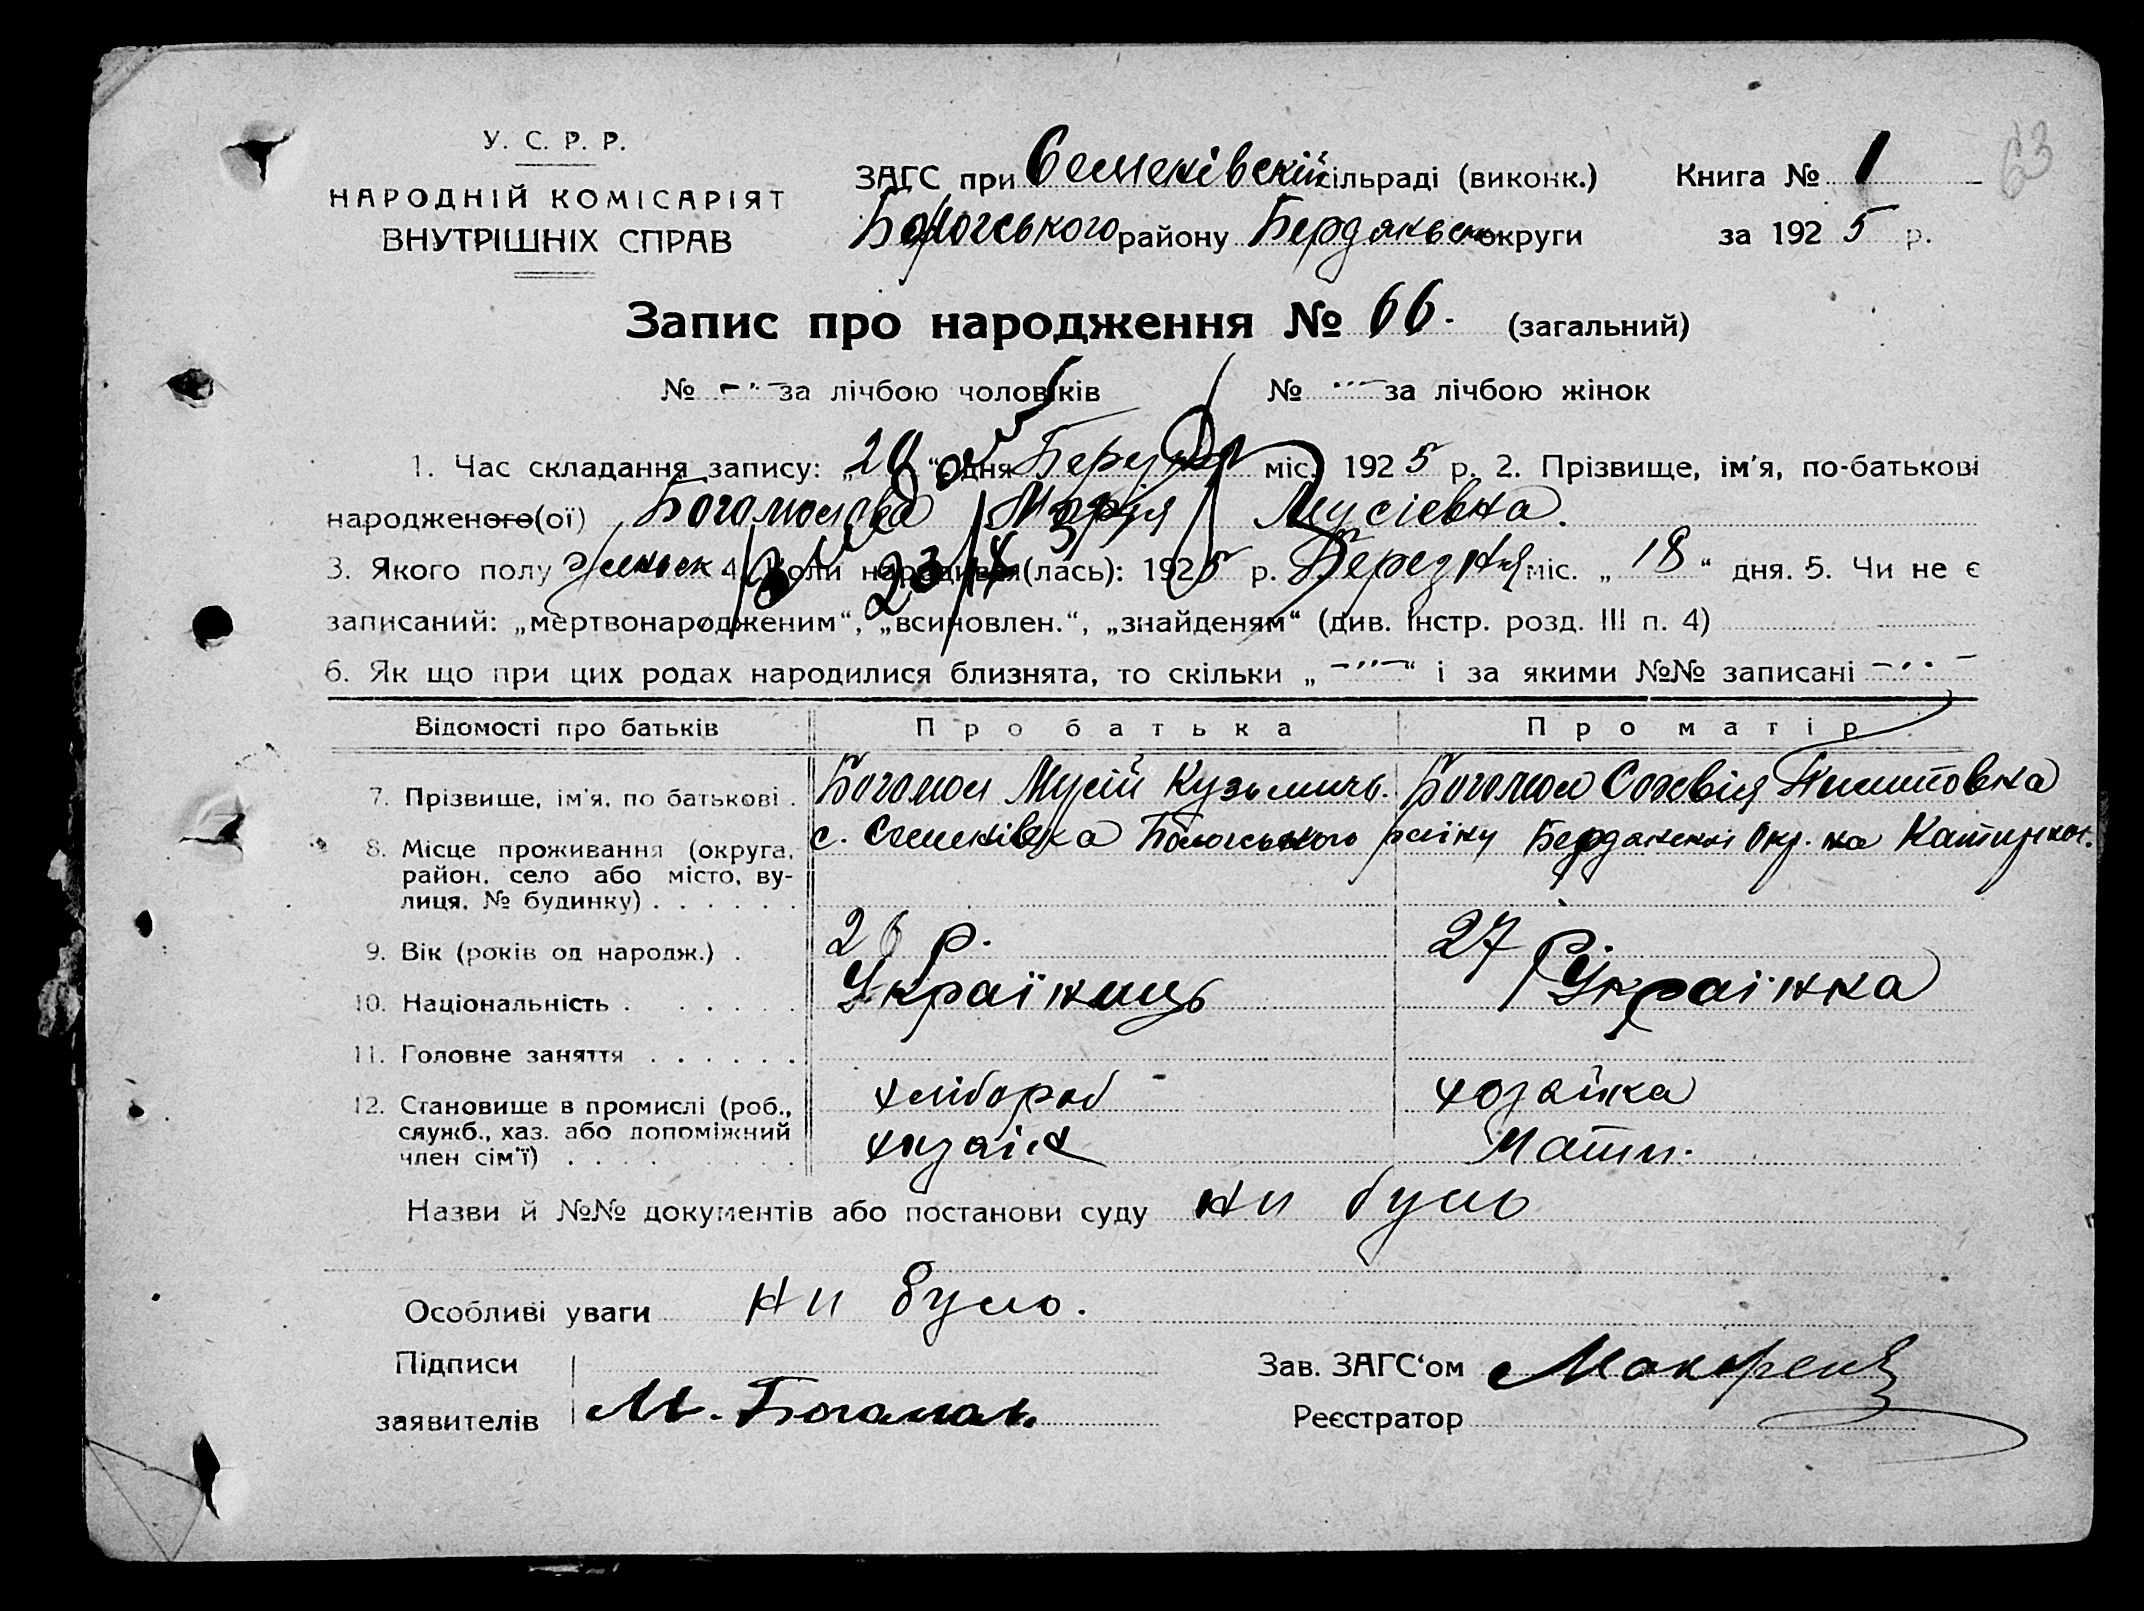 63
У. С. Р. Р.
НАРОДНІЙ КОМІСАРІЯТ
ВНУТРІШНІХ СПРАВ
ЗАГС при Семенівскій сільраді (виконк.) Книга № 1
Пологського району Бердянськ округи за 1925 р.
Запис про народження № 66. (загальний)
№ за лічбою чоловіків № за лічбою жінок
1. Час складання запису: „20“ дня Березня міс. 1925 р. 2. Прізвище, ім'я, по-батькові
народженого(ої) Богомолова Марія Мусієвна.
3. Якого полу женьск 4. Коли народився(лась): 1925 р. Березня міс. „18“ дня. 5. Чи не є
записаний: „мертвонародженим“, „всиновлен.“, „знайденям“ (див. інстр. розд. III п. 4)
6. Як що при цих родах народилися близнята, то скільки „ “ і за якими №№ записані
Відомості про батьків Про батька Про матір
7. Прізвище, ім'я, по батькові . Богомол Мусій Кузьмичь. Богомол Софвія
8. Місце проживання (округа, с. Семенівка Пологського району Бердянскої Окр. на
район, село або місто, ву-
лиця, № будинку) . . . . . .
9. Вік (років од народж.) . 26 р. 27 р.
10. Національність . . . . . . Українець Українка
11. Головне заняття . . . . . .
хлібороб хозайка
12. Становище в промислі (роб.,
служб., хаз. або допоміжний хазаін Мати.
член сім'ї) . . . . . . .
Назви й №№ документів або постанови суду ни було
Особливі уваги ни було.
Підписи Зав. ЗАГС‘ом
заявителів М. Богомол Реєстратор